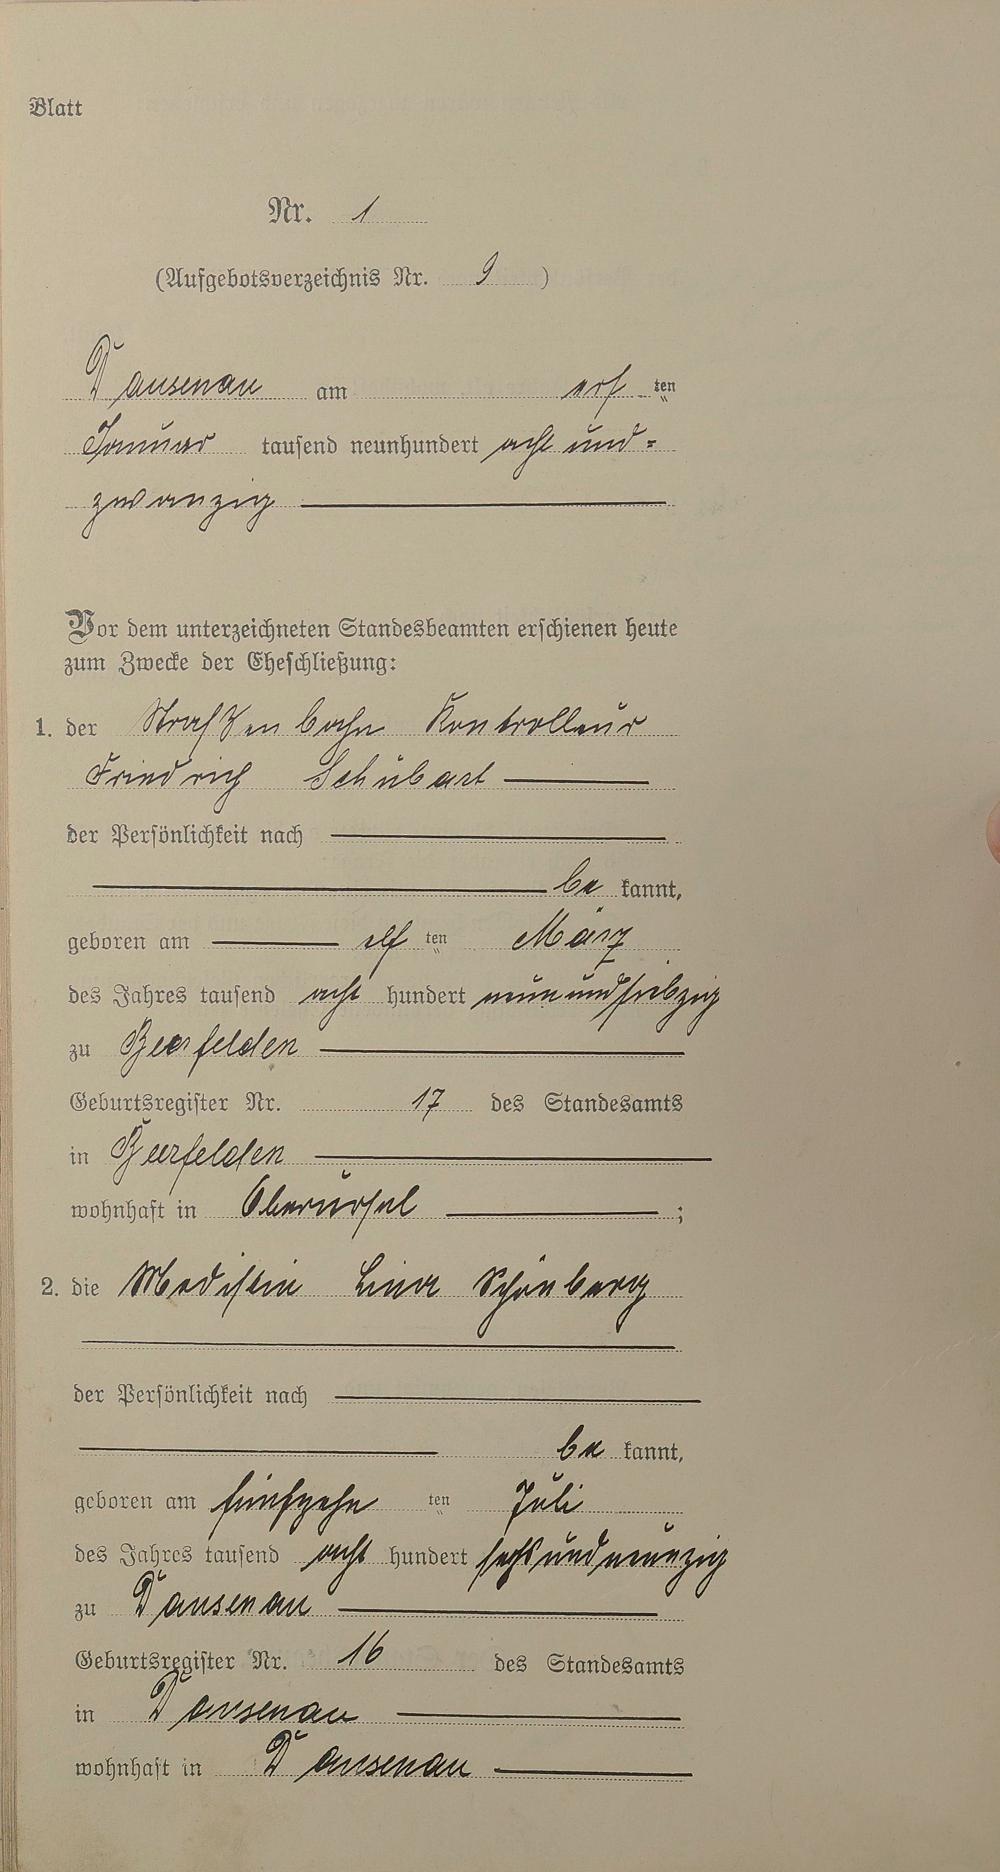 Blatt
Nr. 1
(Aufgebotsverzeichnis Nr. 9 )
Dausenau am ersten
Januar tausend neunhundert acht und=
zwanzig
Vor dem unterzeichneten Standesbeamten erschienen heute
zum Zwecke der Eheschließung:
1. der Straßenbahn Kontrolleur
Friedrich Schubart
der Persönlichkeit nach
be kannt,
geboren am elf ten März
des Jahres tausend acht hundert neunundsiebzig
zu Beerfelden
Geburtsregister Nr. 17 des Standesamts
in Beerfelden
wohnhaft in Oberursel ;
2. die Modistin Lina Schönberg
der Persönlichkeit nach
be kannt,
geboren am fünfzehn ten Juli
des Jahres tausend acht hundert sechsundneunzig
zu Dausenau
Geburtsregister Nr. 16 des Standesamts
in Dausenau
wohnhaft in Dausenau